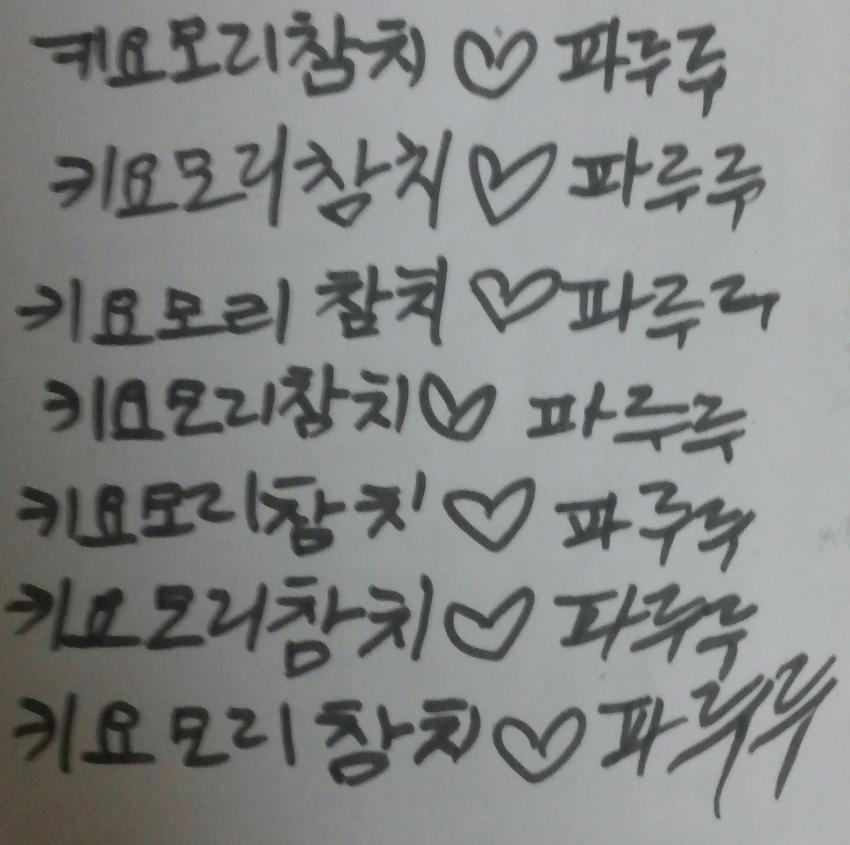 키요모리참치♡파루루
키요모리참치♡파루루
키요모리참치♡파루루
키요모리참치♡파루루
키요모리참치♡파루루
키요모리참치♡파루루
키요모리참치♡파루루